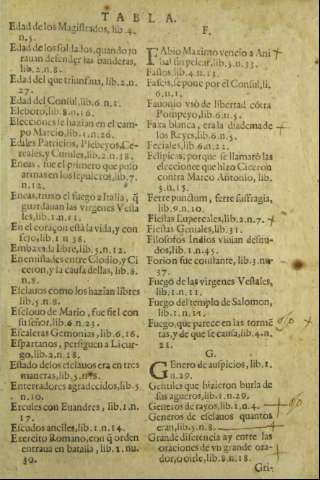 TABLA.
Edad de los Magistrados, lib.4.
n.5.
Edad de los soldados, quando ju
rauan defender las vanderas,
lib.2.n.8.
Edad del que triunfaua, lib.2.n.
27.
Edad del Consul, lib.6.n.1.
Eleboro, lib.8.n.16.
Elecciones se hazian en el cam-
po Marcio, lib.1.n.26.
Ediles Patricios, Plebeyos, Ce-
reales, y Curules, lib.2.n.38.
Eneas, fue el primero que puso
armas en los sepulcros, lib.7.
n.12.
Eneas, truxo el fuego a Italia, q̃
guardauan las virgenes Vesta
les, lib.1.n.11.
En el coraçon està la vida, y con
sejo, lib.1.n.38.
Embaxada libre, lib.5.n.12.
Enemistades entre Clodio, y Ci
ceron, y la causa dellas, lib.8.
n.8.
Esclauos como los hazian libres
lib.5.n.8.
Esclauo de Mario, fue fiel con
su señor, lib.6.n.23.
Escaleras Gemonias, lib.6.16.
Espartanos, persiguen a Licur-
go, lib.2.n.18.
Estado de los esclauos era en tres
maneras, lib.5.n.8.
Enterradores agradecidos, lib.5
.n.10.
Ercules con Euandres, lib.1.n.
17.
Escudos anciles, lib.1.n.14.
Exercito Romano, con q̃ orden
entraua en batalla, lib.1.nu.
30.
F.
Fabio Maximo vencio a Ani
bal sin pelear, lib.3.n.33.
Fastos, lib.4.n.13.
Fascis, se pone por el Consul, li.
6.n.1.
Fauonio vsò de libertad cõtra
Pompeyo, lib.6.n.5.
Faxa blanca, era la diadema de
los Reyes, lib.6.n.5.
Feciales, lib.6.n.22.
Felipicas, porque se llamarõ las
elecciones que hizo Ciceron
contra Marco Antonio, lib.
3.n.15.
Ferre punctum, ferre suffragia,
lib.9.n.10.
Fiestas Lupercales, lib.2.n.7.
Fiestas Geniales, lib.31.
Filosofos Indios viuian desnu-
dos, lib.1.n.45.
Forion fue constante, lib.3.nu-
37.
Fuego de las virgenes Vestales,
lib.1.n.11.
Fuego del templo de Salomon,
lib.1.n.11.
Fuego, que parece en las tormẽ
tas, y de que se causa, lib.4.n.
21.
G.
Genero de auspicios, lib.1.
n.29.
Gentiles que hizieron burla de
sus agueros, lib.1.n.29.
Generos de rayos, lib.1.n.4.
Generos de esclauos quantos
eran, lib.5.n.8.
Grande diferencia ay entre las
oraciones de vn grande ora-
dor, o oirle, lib.8.n.18.
Gri-